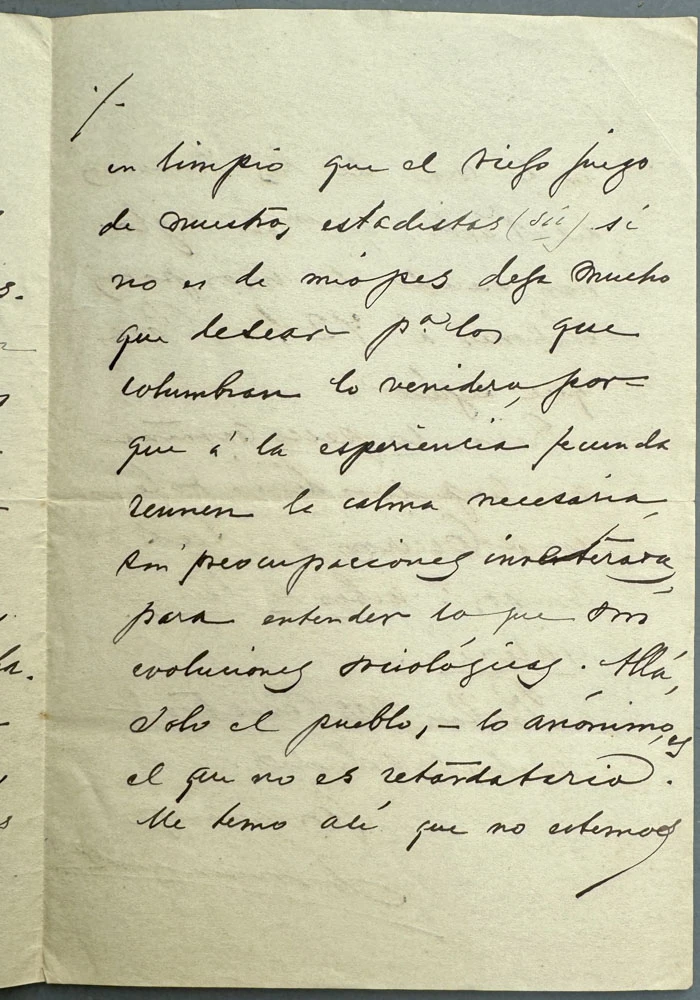 ./.
en limpio que el viejo juego
de nuestros estadistas (sic) si
no es de miopes deja mucho
que desear pª los que
columbran lo venidero, por-
que á la esperiencia fecunda
reunen la calma necesaria,
sin preocupaciones inveteradas,
para entender lo que son
evoluciones sociológicas. Allá,
solo el pueblo, – lo anónimo, es
el que no es retardatario.
Me temo asi que no estemos